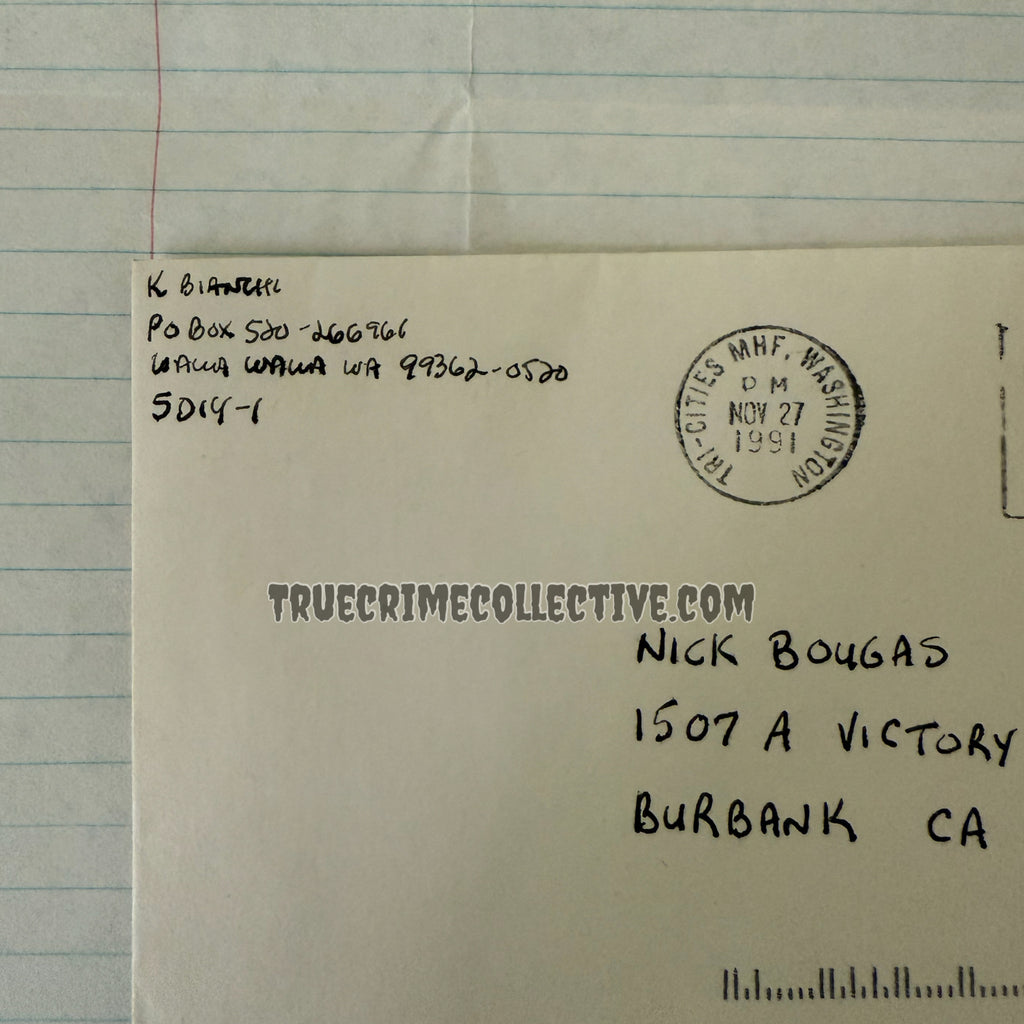 K BIANCHI
PO BOX 520-266966
WALLA WALLA WA 99362-0520
5D14-1
TRI-CITIES MHF, WASHINGTON
PM
NOV 27
1991
TRUECRIMECOLLECTIVE.COM
NICK BOUGAS
1507 A VICTORY
BURBANK CA